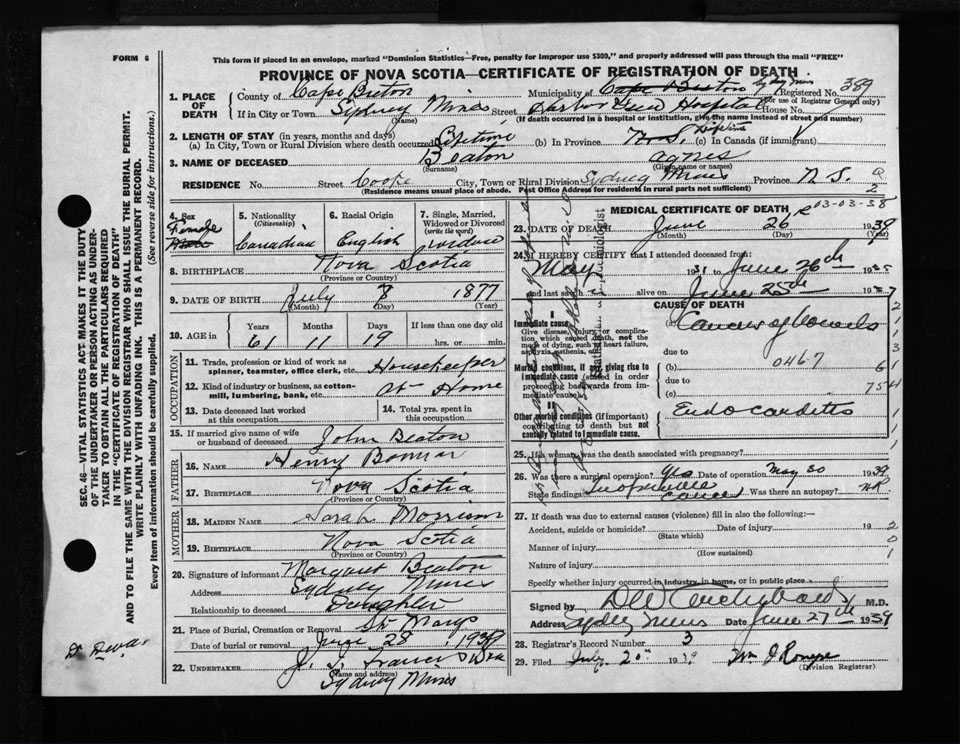 FORM 6
This form if placed in an envelope, marked "Dominion Statistics—Free, penalty for improper use $300," and properly addressed will pass through the mail "FREE"
PROVINCE OF NOVA SCOTIA—CERTIFICATE OF REGISTRATION OF DEATH
1. PLACE OF DEATH
County of Cape Breton Municipality of Cape Breton Sydney Mines Registered No. 389
(For use of Registrar General only)
If in City or Town Sydney Mines Street Harbor View Hospital House No.
(Name) (If death occurred in a hospital or institution, give the name instead of street and number)
2. LENGTH OF STAY (in years, months and days)
(a) In City, Town or Rural Division where death occurred Lifetime (b) In Province N.S. Lifetime (c) In Canada (if immigrant)
3. NAME OF DECEASED Beaton Agnes
(Surname) (Given name or names)
RESIDENCE No. Street Cooke City, Town or Rural Division Sydney Mines Province N.S.
(Residence means usual place of abode. Post Office Address for residents in rural parts not sufficient)
4. Sex Female
5. Nationality (Citizenship) Canadian
6. Racial Origin English
7. Single, Married, Widowed or Divorced (write the word) Widow
8. BIRTHPLACE Nova Scotia
(Province or Country)
9. DATE OF BIRTH July 7 1877
(Month) (Day) (Year)
10. AGE in Years Months Days If less than one day old
61 11 19 hrs. or min.
OCCUPATION
11. Trade, profession or kind of work as spinner, teamster, office clerk, etc. Housekeeper
12. Kind of industry or business, as cotton-mill, lumbering, bank, etc. At Home
13. Date deceased last worked at this occupation
14. Total yrs. spent in this occupation
15. If married give name of wife or husband of deceased John Beaton
FATHER
16. NAME Henry Bonnar
17. BIRTHPLACE Nova Scotia
(Province or Country)
MOTHER
18. MAIDEN NAME Sarah Morrison
19. BIRTHPLACE Nova Scotia
(Province or Country)
20. Signature of informant Margaret Beaton
Address Sydney Mines
Relationship to deceased Daughter
21. Place of Burial, Cremation or Removal St. Marys
Date of burial or removal June 28, 1939
22. UNDERTAKER J. S.
(Name and address)
Sydney Mines
MEDICAL CERTIFICATE OF DEATH
R 03-03-38
23. DATE OF DEATH June 26 1939
(Month) (Day) (Year)
24. I HEREBY CERTIFY that I attended deceased from:
May 1931 to June 26th 19
and last saw alive on June 25th 19
CAUSE OF DEATH
I
Immediate cause
Give disease, injury or complication which caused death, not the mode of dying, such as heart failure, asphyxia, asthenia, etc.
(a) Cancer of bowels
due to
Morbid conditions, if any, giving rise to immediate cause (stated in order proceeding backwards from immediate cause)
(b) 0467
due to
(c)
II
Other morbid conditions (if important) contributing to death but not causally related to immediate cause.
Endocarditis
25. If a woman was the death associated with pregnancy?
26. Was there a surgical operation? yes Date of operation May 30 1939
State findings Inoperable cancer Was there an autopsy? no
27. If death was due to external causes (violence) fill in also the following:—
Accident, suicide or homicide? Date of injury 19
(State which)
Manner of injury
(How sustained)
Nature of injury
Specify whether injury occurred in industry, in home, or in public place
Signed by D W Archibald M.D.
Address Sydney Mines Date June 27th 1939
28. Registrar's Record Number 3
29. Filed July 20th 1939 Wm J
(Division Registrar)
SEC. 46—VITAL STATISTICS ACT, MAKES IT THE DUTY OF THE UNDERTAKER OR PERSON ACTING AS UNDERTAKER TO OBTAIN ALL THE PARTICULARS REQUIRED IN THE "CERTIFICATE OF REGISTRATION OF DEATH" AND TO FILE THE SAME WITH THE DIVISION REGISTRAR WHO SHALL ISSUE THE BURIAL PERMIT.
WRITE PLAINLY WITH UNFADING INK. THIS IS A PERMANENT RECORD.
Every item of information should be carefully supplied. (See reverse side for instructions.)